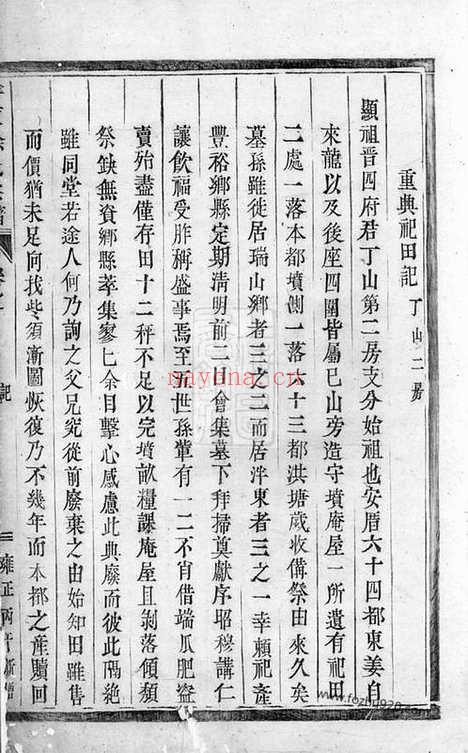 重典祀田記 丁山二房
顯祖晋四府君丁山第二房支分始祖也安厝六十四都東姜自
來龍以及後座四圍皆屬已山旁造守墳庵屋一所遺有祀田
二處一落本都墳側一落六十三都洪塘歲收備祭由來久矣
墓孫雖徙居瑞山鄉者三之二而居泮東者三之一幸頼祀產
豐裕鄉縣定期清明前二日會集墓下拜掃奠獻序昭穆講仁
讓飲福受胙稱盛事焉至五世孫輩有一二不肖借端瓜肥盜
賣殆盡僅存田十二秤不足以完墳畝糧課庵屋且剥落傾頽
祭缺無資鄉縣萃集寥匕余目擊心感慮此典廢而彼此隔絶
雖同堂若途人何乃詢之父兄究從前廢棄之由始知田雖售
而價猶未足向找些須漸圖恢復乃不幾年而本都之產贖回
記
雍正丙午
nayona.cn